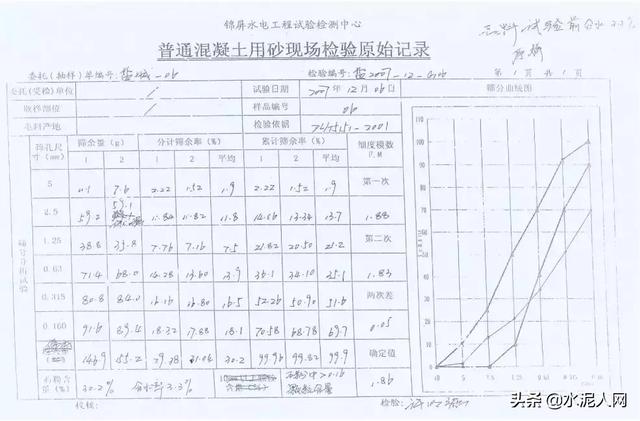 锦屏水电工程试验检测中心
普通混凝土用砂现场检验原始记录
委托(抽样)单编号:
检验编号:
第 1 页 共 1 页
委托(受检)单位 / 试验日期 2007年12月06日 筛分曲线图
取样部位 / 样品编号 06
毛料产地 检验依据 DL/T5151-2001
筛孔尺寸(mm) 筛余量(g) 分计筛余率(%) 累计筛余率(%) 细度模数 F.M
1 2 1 2 平均 1 2 平均
5 7.6 2.22 1.52 1.9 2.22 1.52 1.9 第一次
2.5 59.2 59.1 11.84 11.82 11.8 14.06 13.34 13.7 1.88
1.25 38.8 35.8 7.76 7.16 7.5 21.82 20.50 21.2 第二次
0.63 71.4 68.0 14.28 13.60 13.9 36.1 34.10 35.1 1.83
0.315 80.8 84.0 16.16 16.80 16.5 52.26 50.90 51.6 两次差
0.160 91.6 89.4 18.32 17.88 18.1 70.58 68.78 69.7 0.05
146.9 29.38 31.04 30.2 99.96 99.82 99.9 确定值
筛分分析试验
石粉含量(%) 30.2% 含水率3.3% 1.86
110
100
90
80
70
60
50
40
30
20
10
0
校核:
检验:
头条 @水泥人网